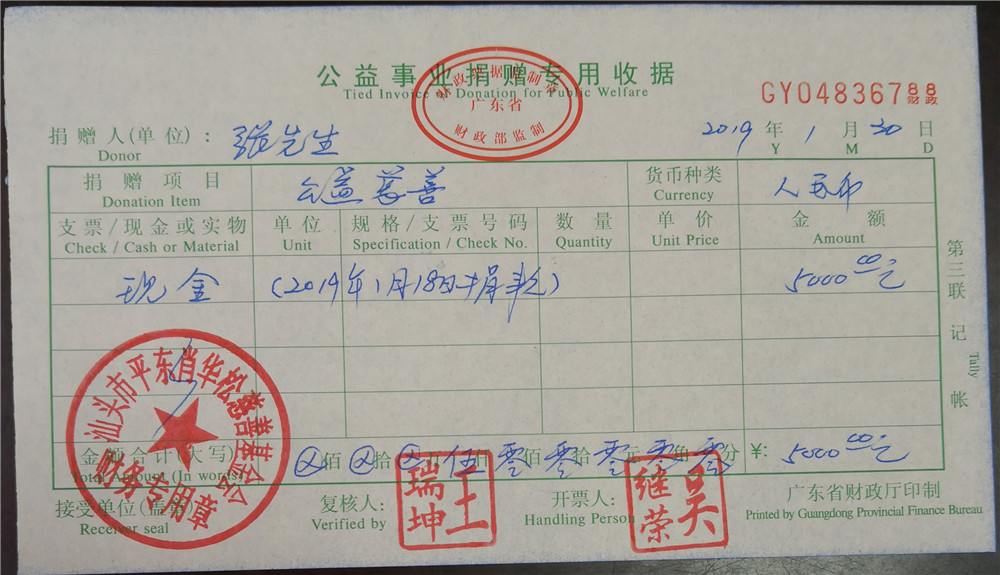 公益事业捐赠专用收据
Tied Invoice of Donation for Public Welfare
财政票据监制章
广东省
财政部监制
GY04836788
财政
捐赠人(单位): 张先生 2019 年 1 月 30 日
Donor Y M D
捐赠项目 公益慈善 货币种类 人民币
Donation Item Currency
支票/现金或实物 单位 规格/支票号码 数量 单价 金额
Check / Cash or Material Unit Specification / Check No. Quantity Unit Price Amount
现金 (2019年1月18日 5000.00元
第三联 记帐
Tally
汕头市平东肖华松慈善基金会
财务专用章
金额合计(大写) 佰 拾 万 伍 零 佰 零 拾 零 元 零 角 零 分 ¥: 5000.00元
Total Amount (In words)
接受单位(盖章) 复核人: 王瑞坤 开票人: 吴继荣 广东省财政厅印制
Receiver seal Verified by Handling Person Printed by Guangdong Provincial Finance Bureau